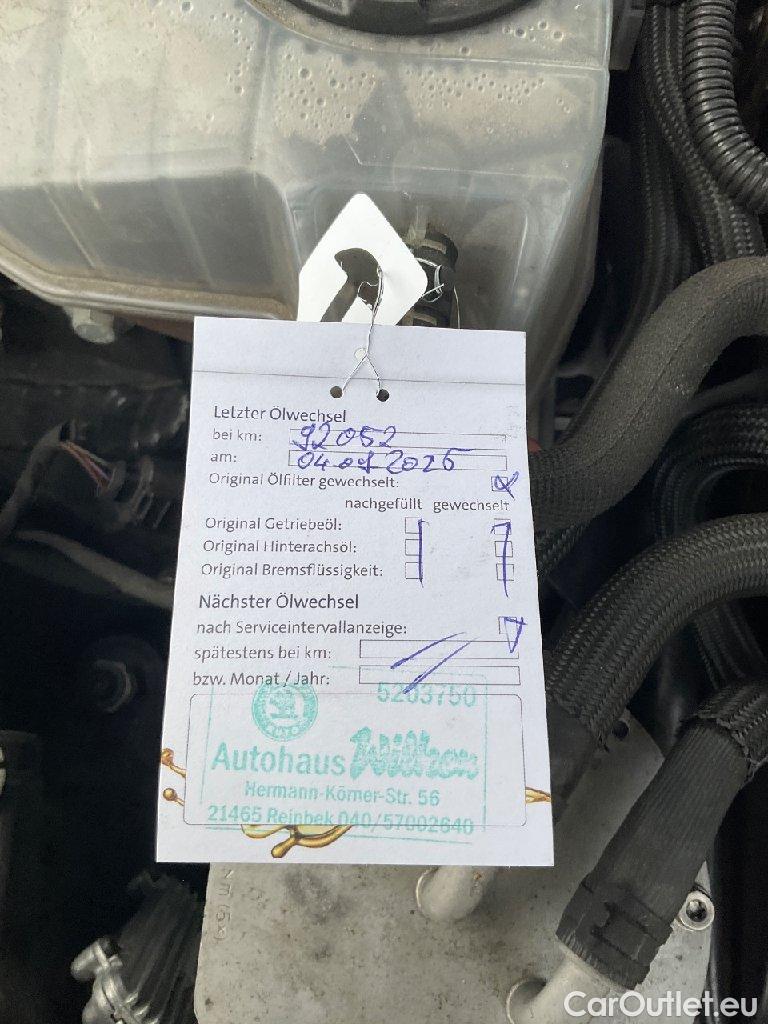 Letzter Ölwechsel
bei km: 92052
am: 04.09.2025
Original Ölfilter gewechselt:
nachgefüllt gewechselt
Original Getriebeöl:
Original Hinterachsöl:
Original Bremsflüssigkeit:
Nächster Ölwechsel
nach Serviceintervallanzeige:
spätestens bei km:
bzw. Monat / Jahr:
5203750
Autohaus
Hermann-Körner-Str. 56
21465 Reinbek 040/57002640
CarOutlet.eu